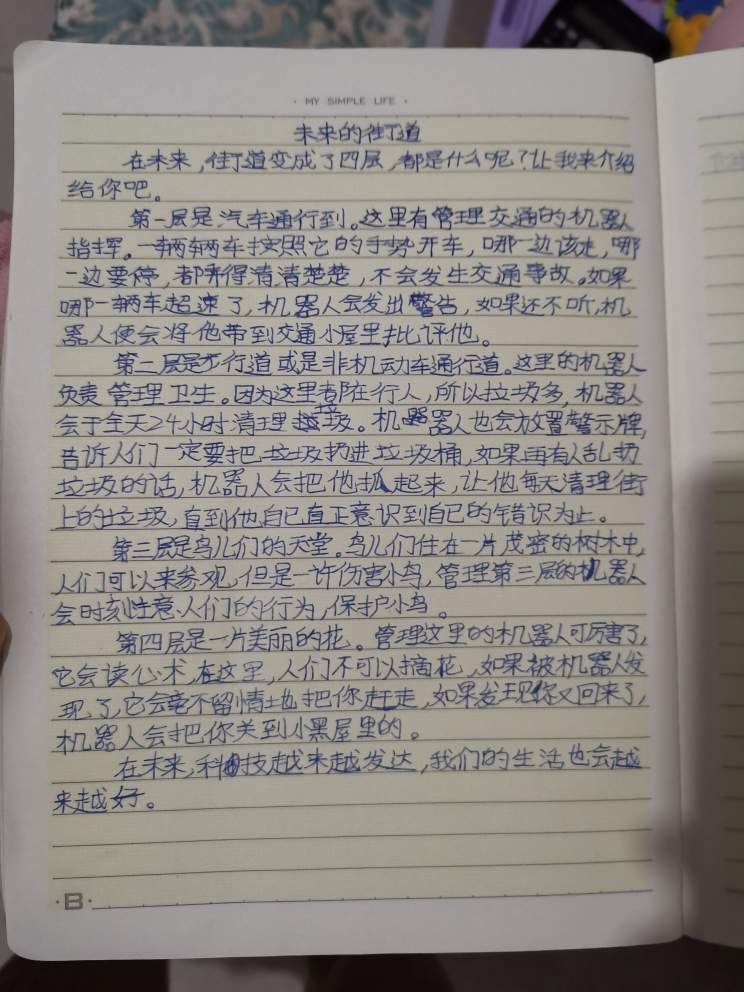 · MY SIMPLE LIFE ·
未来的街道
在未来，街道变成了四层，都是什么呢？让我来介绍
给你吧。
第一层是汽车通行到。这里有管理交通的机器人
指挥。一辆辆车按照它的手势开车，哪一边该走，哪
一边要停，都弄得清清楚楚，不会发生交通事故。如果
哪一辆车超速了，机器人会发出警告，如果还不听，机
器人便会将他带到交通小屋里批评他。
第二层是步行道或是非机动车通行道。这里的机器人
负责管理卫生。因为这里都在行人，所以垃圾多，机器人
会于全天24小时清理垃圾。机器人也会放置警示牌，
告诉人们一定要把垃圾扔进垃圾桶，如果再有人乱扔
垃圾的话，机器人会把他抓起来，让他每天清理街
上的垃圾，直到他自己真正意识到自己的错识为止。
第三层是鸟儿们的天堂。鸟儿们住在一片茂密的树木中，
人们可以来参观，但是一许伤害小鸟，管理第三层的机器人
会时刻注意人们的行为，保护小鸟。
第四层是一片美丽的花。管理这里的机器人可厉害了，
它会读心术，在这里，人们不可以摘花，如果被机器人发
现了，它会毫不留情地把你赶走，如果发现你又回来了，
机器人会把你关到小黑屋里的。
在未来，科技越来越发达，我们的生活也会越
来越好。
B